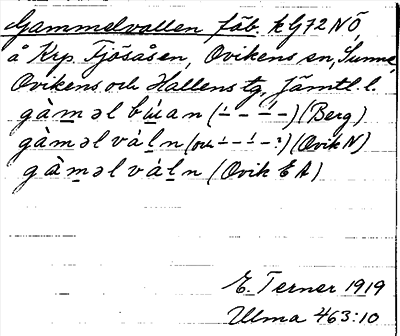 Gammelvallen fäb. kG72NÖ,
å Krp. Fjösåsen, Ovikens sn, Sunne,
Ovikens och Hallens tg, Jämtl. l.
gàməl búan (-́ - -́ -) (Berg)
gàməl váln (och -́ - -́ -:) (Ovik N)
gàməl váln (Ovik EA)
E. Terner 1919
Ulma 463:10